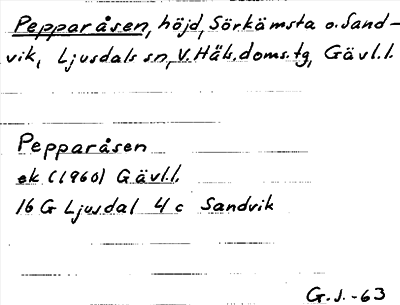 Pepparåsen, höjd, Sörkämsta o. Sand-
vik, Ljusdals sn, V. Häls. doms. tg, Gävl.l.
Pepparåsen
ek (1960) Gävl.l.
16 G Ljusdal 4 c Sandvik
G.J.-63